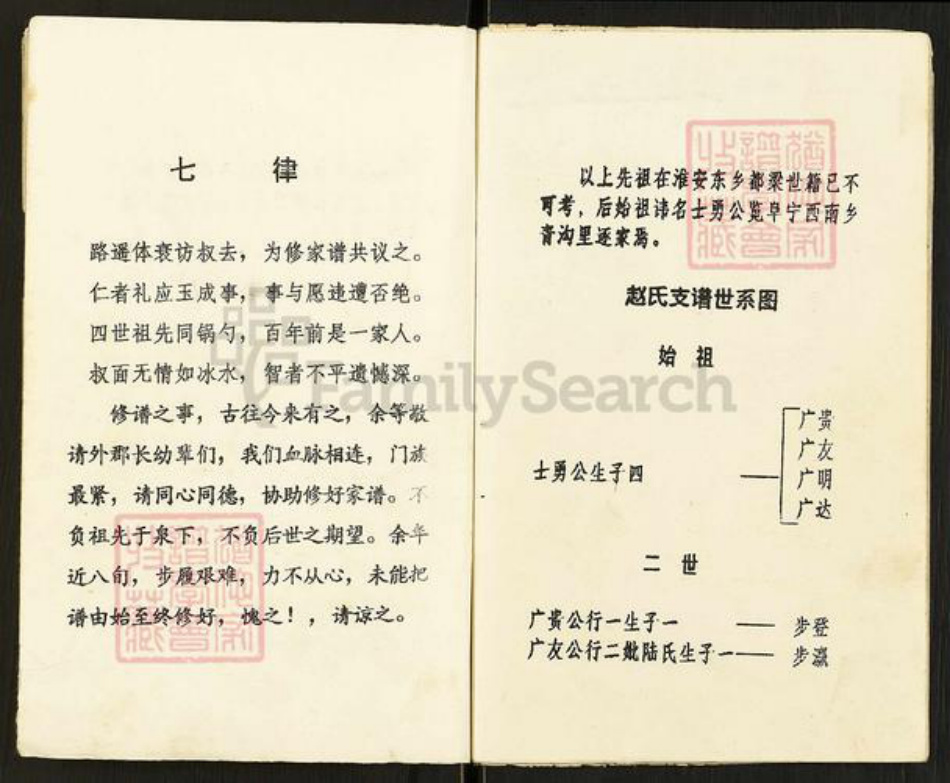 七 律
路遥体衰访叔去，为修家谱共议之。
仁者礼应玉成事，事与愿违遭否绝。
四世祖先同锅勺，百年前是一家人。
叔面无情如冰水，智者不平遗憾深。
修谱之事，古往今来有之，余等敬
请外郡长幼辈们，我们血脉相连，门族
最紧，请同心同德，协助修好家谱。不
负祖先于泉下，不负后世之期望。余年
近八旬，步履艰难，力不从心，未能把
谱由始至终修好，愧之！，请谅之。
以上先祖在淮安东乡都梁世籍已不
可考，后始祖讳名士勇公览阜宁西南乡
青沟里逐家焉。
赵氏支谱世系图
始 祖
士勇公生子四
广贵
广友
广明
广达
二 世
广贵公行一生子一 —— 步登
广友公行二妣陆氏生子一—— 步瀛
FamilySearch